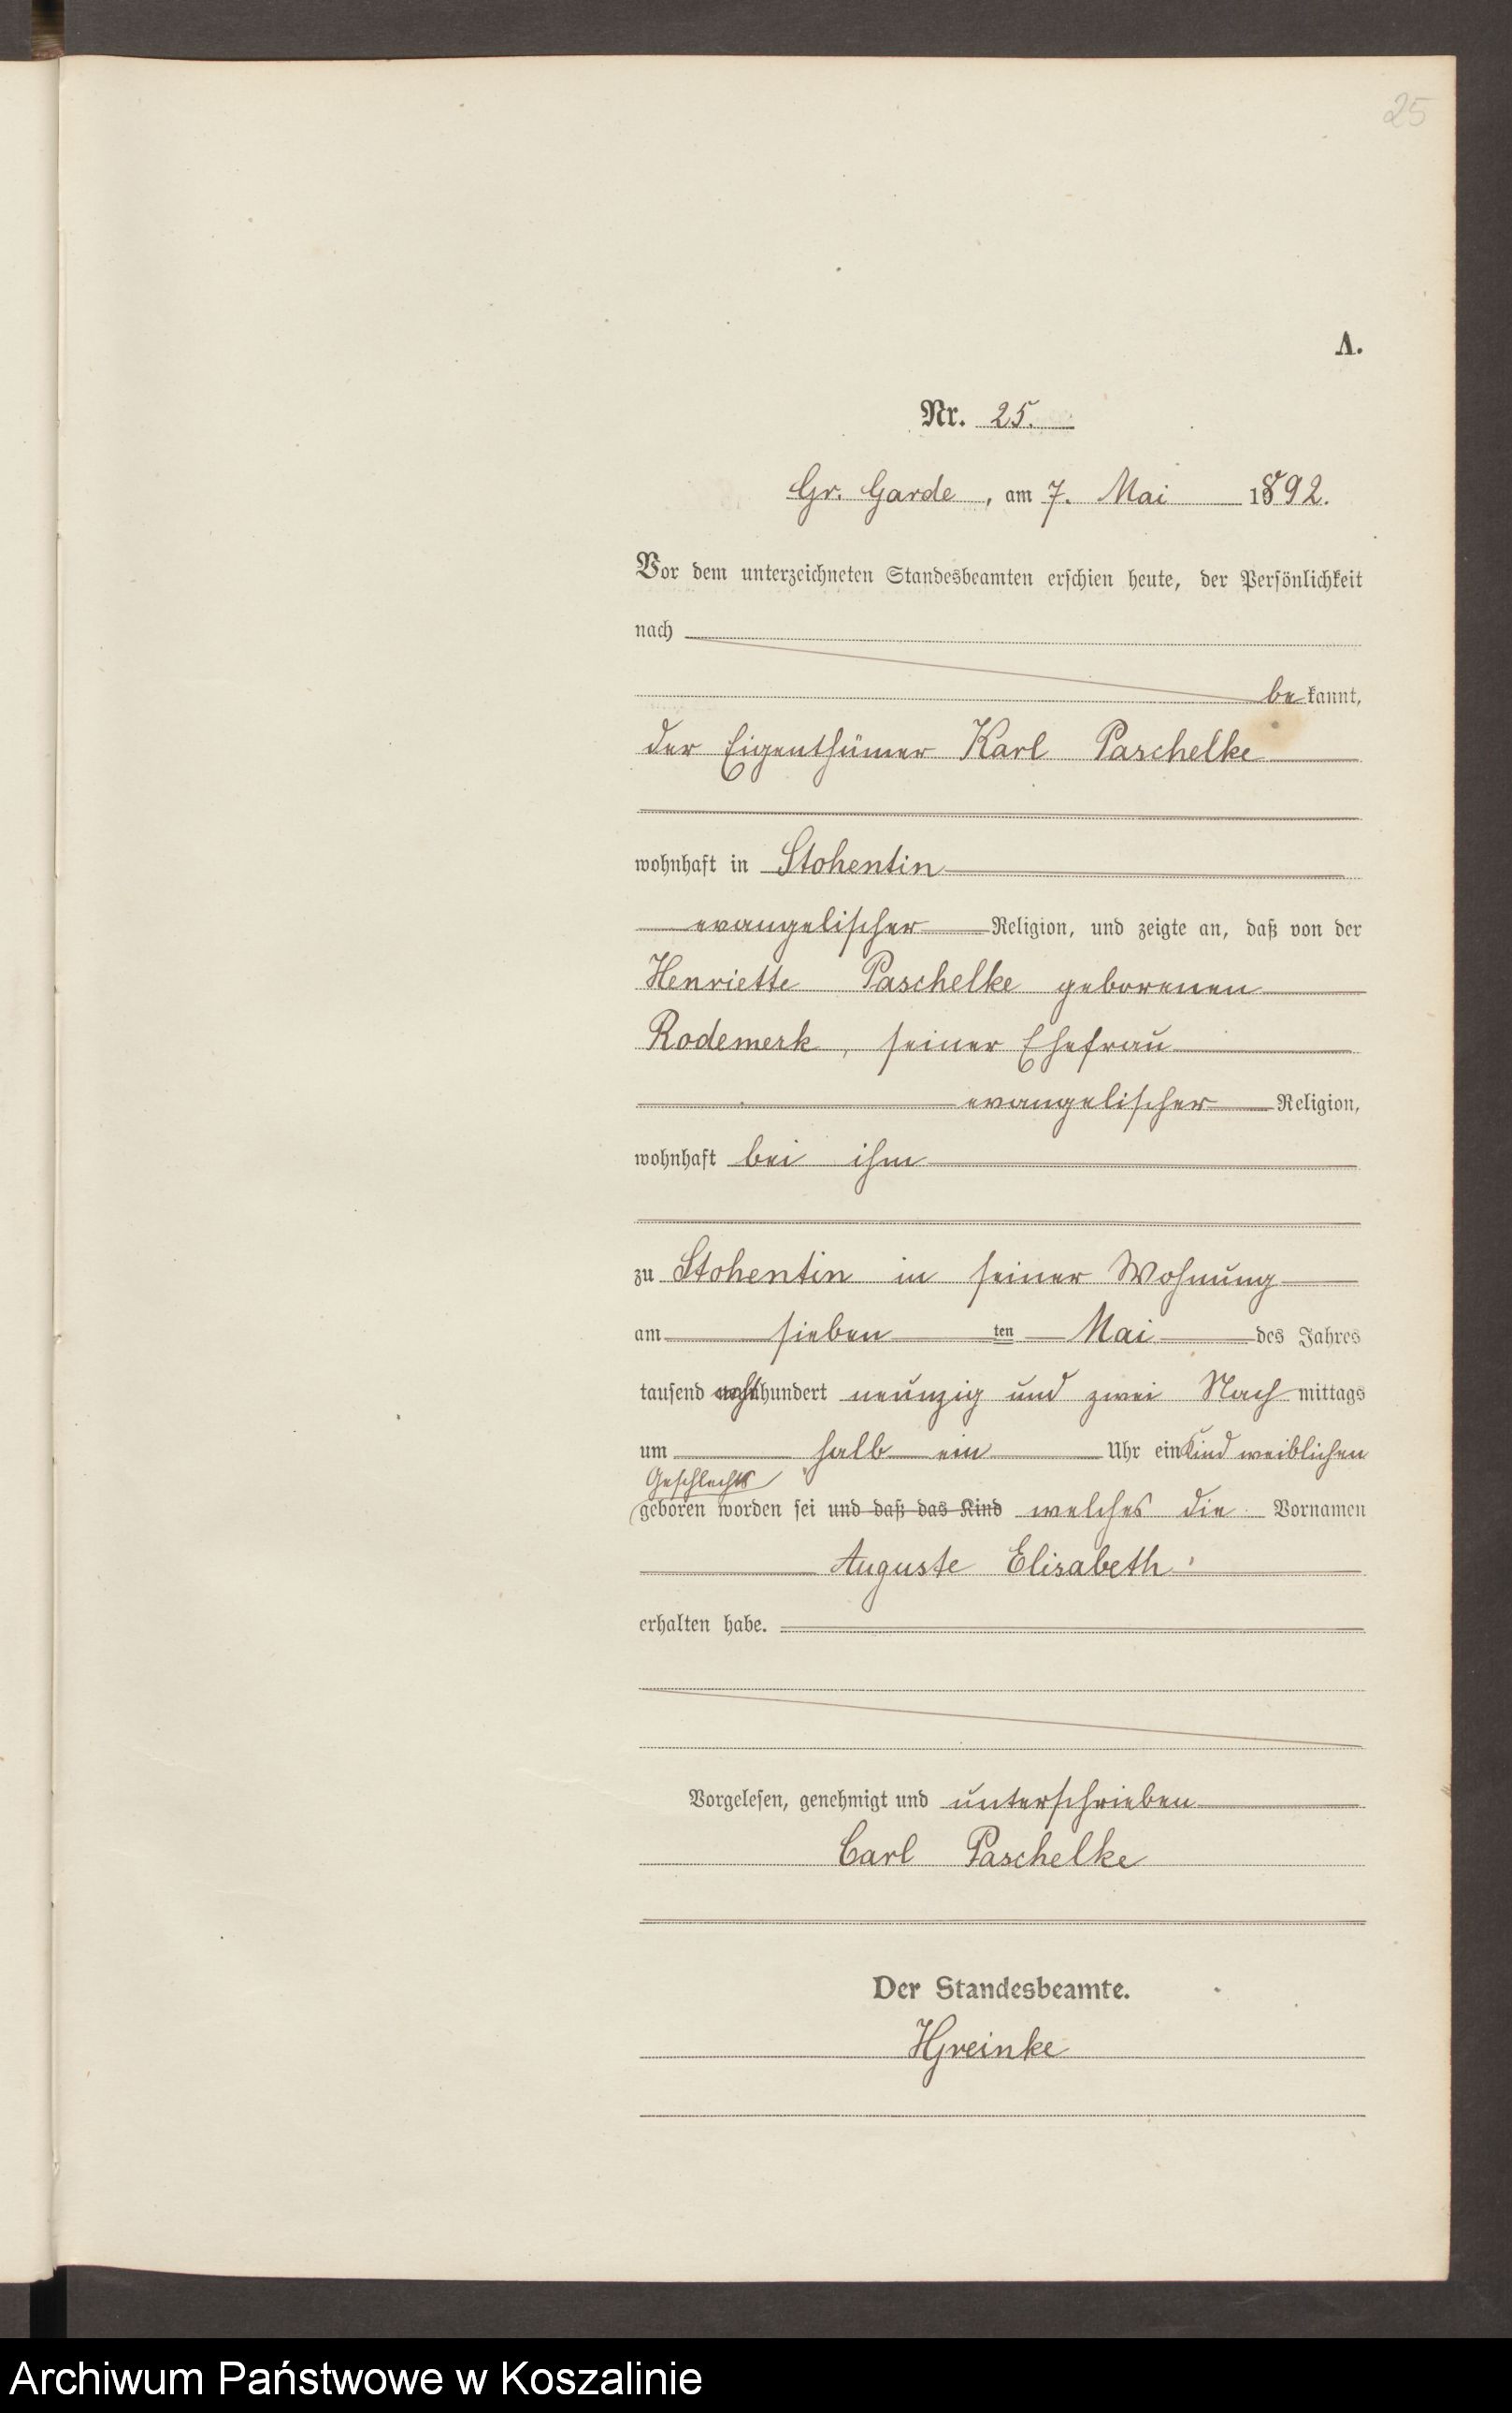 25
A.
Nr. 25.
Gr. Garde, am 7. Mai 1892.
Vor dem unterzeichneten Standesbeamten erschien heute, der Persönlichkeit
nach
bekannt,
der Eigenthümer Karl Paschelke
wohnhaft in Stohentin
evangelischer Religion, und zeigte an, daß von der
Henriette Paschelke geborenen
Rodemerk, seiner Ehefrau
evangelischer Religion,
wohnhaft bei ihm
zu Stohentin in seiner Wohnung
am sieben ten Mai des Jahres
tausend achthundert neunzig und zwei Nach mittags
um halb ein Uhr ein Kind weiblichen
Geschlechts
geboren worden sei und daß das Kind welches die Vornamen
Auguste Elisabeth
erhalten habe.
Vorgelesen, genehmigt und unterschrieben
Carl Paschelke
Der Standesbeamte.
HGreinke
Archiwum Państwowe w Koszalinie